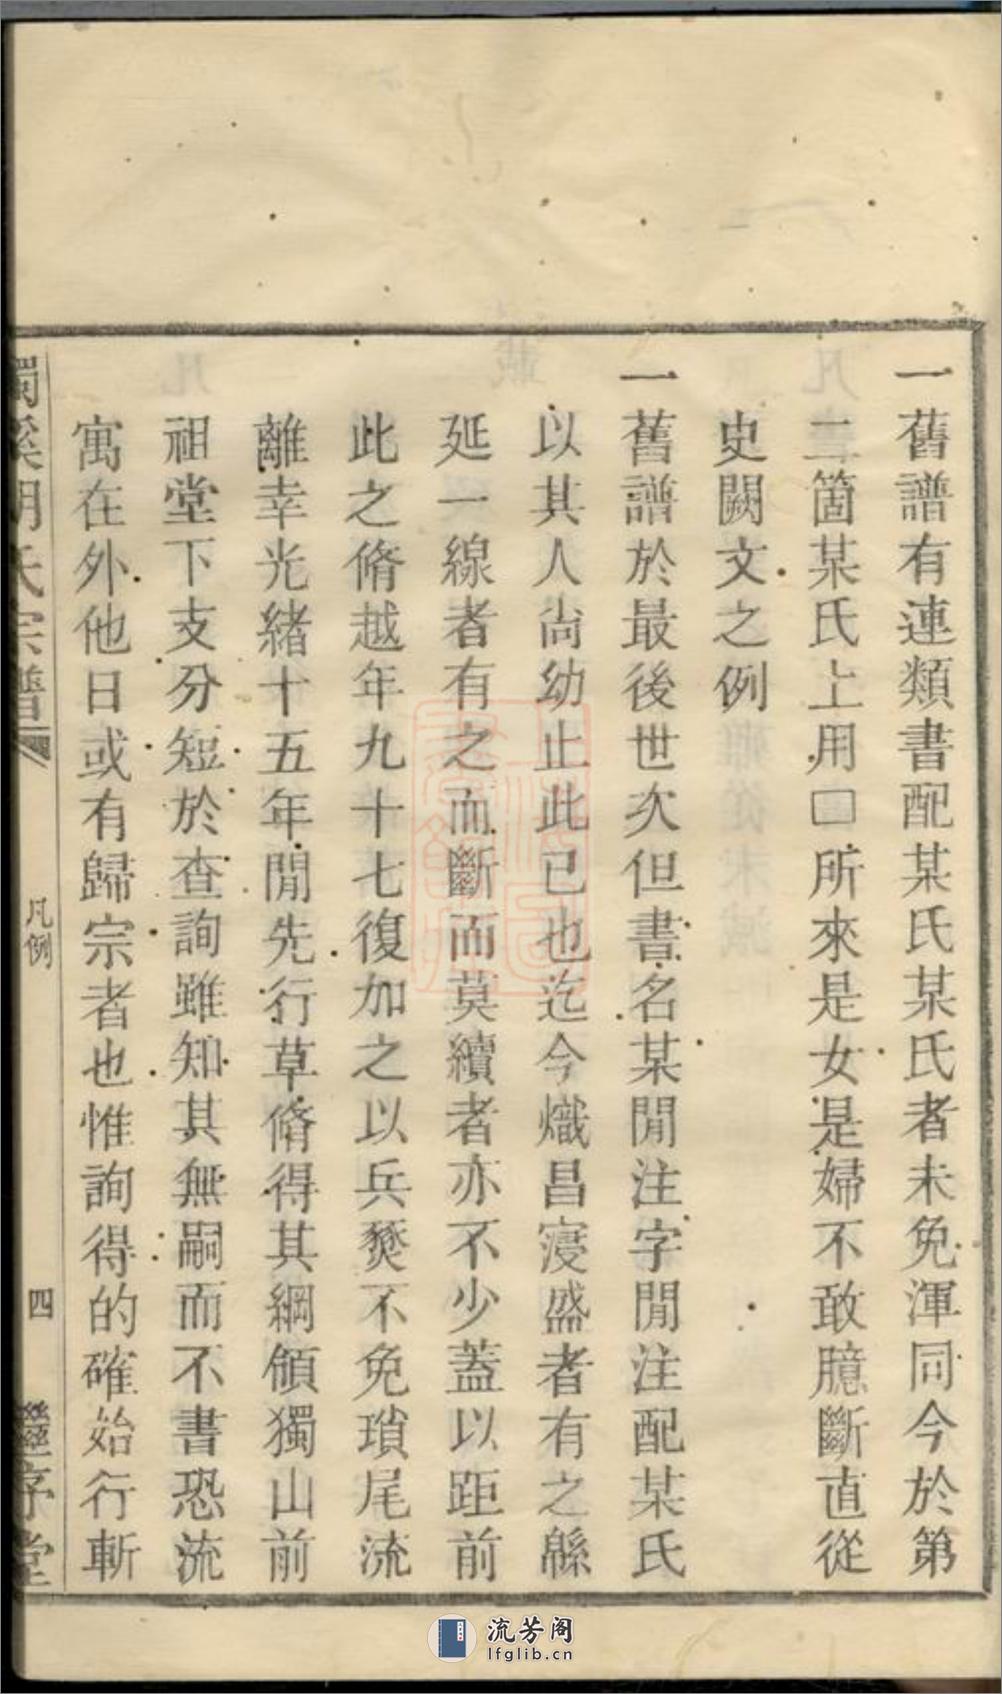 一舊譜有連類書配某氏某氏者未免渾同今於第
二箇某氏上用口所來是女是婦不敢臆斷直從
史闕文之例
一舊譜於最後世次但書名某閒注字閒注配某氏
以其人尙幼止此已也迄今熾昌寖盛者有之緜
延一線者有之而斷而莫續者亦不少蓋以距前
此之脩越年九十七復加之以兵燹不免瑣尾流
離幸光緒十五年閒先行草脩得其綱領獨山前
祖堂下支分短於查詢雖知其無嗣而不書恐流
寓在外他日或有歸宗者也惟詢得的確始行斬
氏宗譜
凡例
四
序堂
流芳阁
lfglib.cn